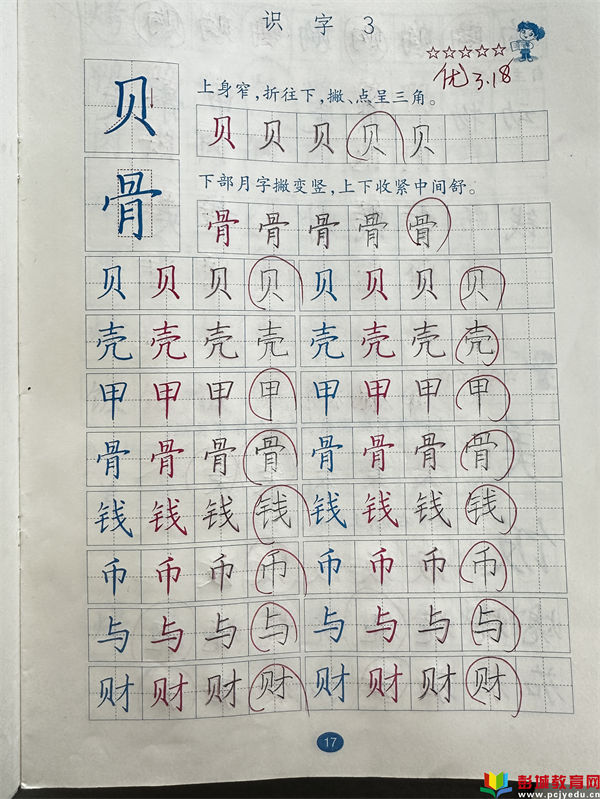 识 字 3
☆☆☆☆☆
优 3.18
贝
上身窄,折往下,撇、点呈三角。
贝 贝 贝 贝 贝
骨
下部月字撇变竖,上下收紧中间舒。
骨 骨 骨 骨 骨
贝 贝 贝 贝 贝 贝 贝 贝
壳 壳 壳 壳 壳 壳 壳 壳
甲 甲 甲 甲 甲 甲 甲 甲
骨 骨 骨 骨 骨 骨 骨 骨
钱 钱 钱 钱 钱 钱 钱 钱
币 币 币 币 币 币 币 币
与 与 与 与 与 与 与 与
财 财 财 财 财 财 财 财
17
彭城教育网
www.pcjyedu.cn